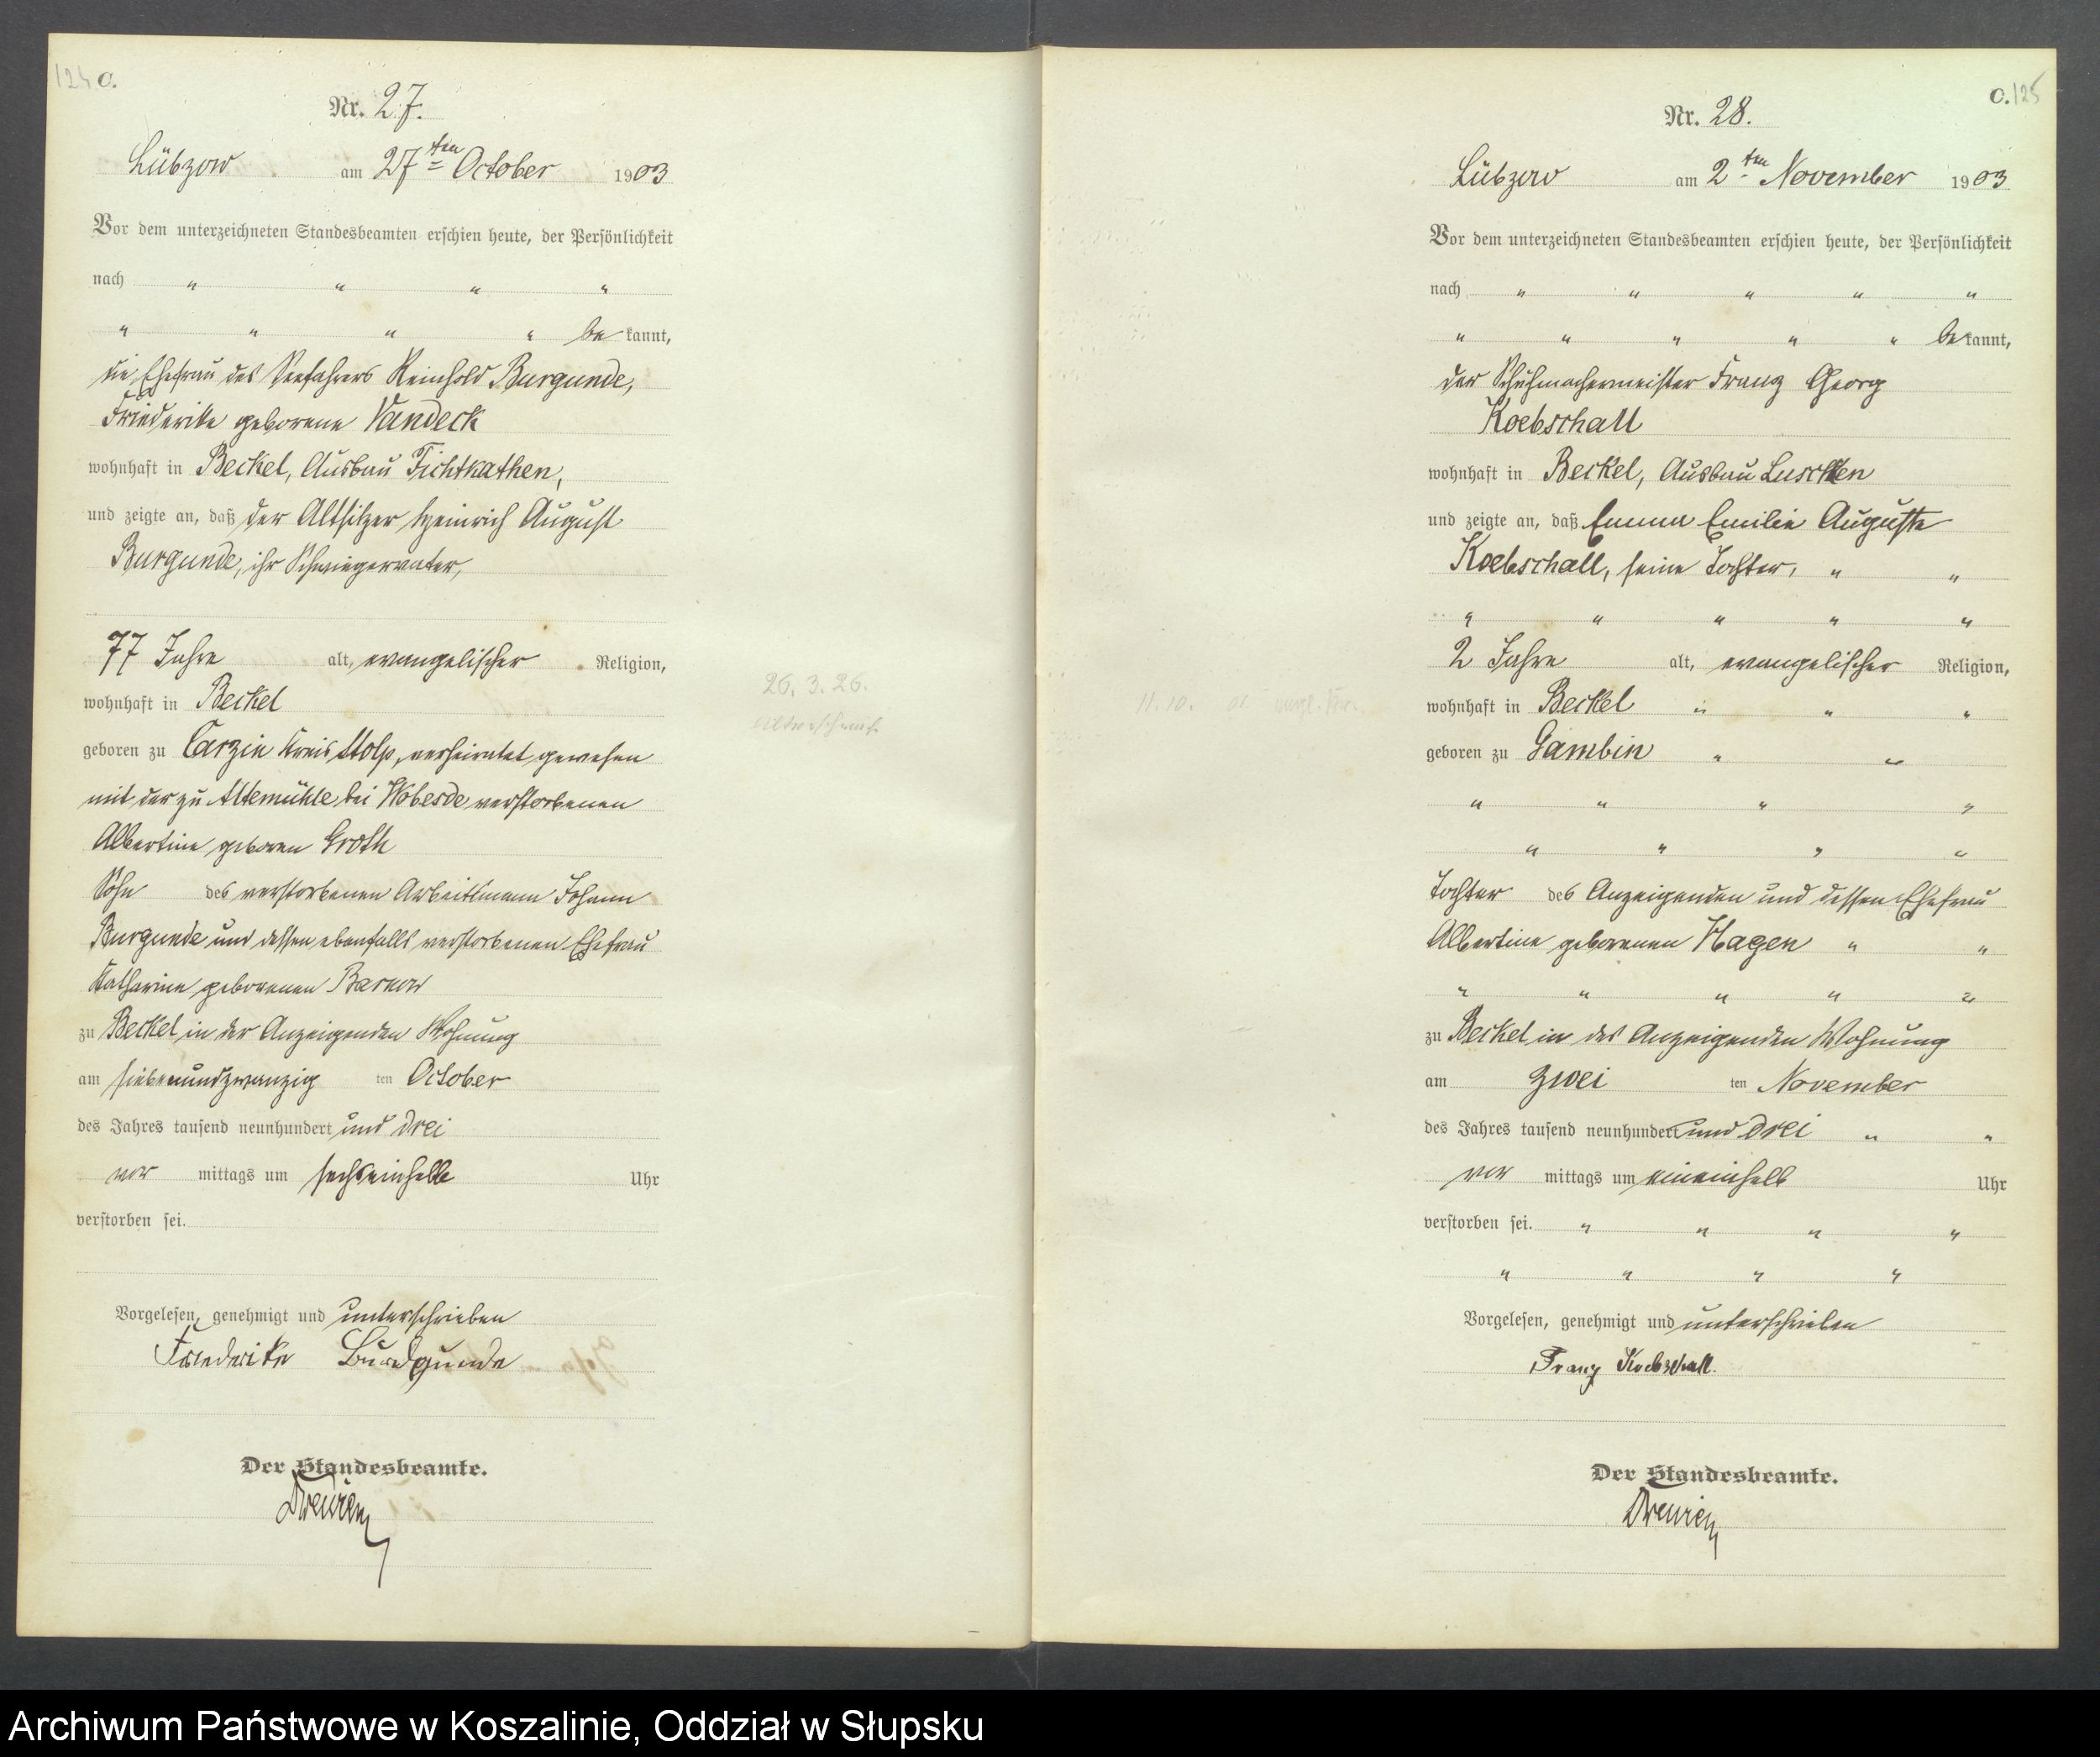 124 C.
Nr. 27.
Lübzow am 27ten October 1903
Vor dem unterzeichneten Standesbeamten erschien heute, der Persönlichkeit
nach " " " "
" " " " bekannt,
die Ehefrau des Seefahrers Reinhold Burgunde,
Friederike geborene Vandeck
wohnhaft in Beckel, Ausbau Fichtkathen,
und zeigte an, daß der Altsitzer Heinrich August
Burgunde, ihr Schwiegervater,
77 Jahre alt, evangelischer Religion,
wohnhaft in Beckel
26. 3. 26.
geboren zu Carzin Kreis Stolp, verheiratet gewesen
mit der zu Altemühle bei Wobesde verstorbenen
Albertine geboren Groth
Sohn des verstorbenen Arbeitsmann Johann
Burgunde und dessen ebenfalls verstorbenen Ehefrau
Katharine geborenen Barnow
zu Beckel in der Anzeigenden Wohnung
am siebenundzwanzig ten October
des Jahres tausend neunhundert und drei
vor mittags um sechseinhalb Uhr
verstorben sei.
Vorgelesen, genehmigt und unterschrieben
Friederike Burdgunde
Der Standesbeamte.
C. 125
Nr. 28.
Lübzow am 2ten November 1903
Vor dem unterzeichneten Standesbeamten erschien heute, der Persönlichkeit
nach " " " " "
" " " " " bekannt,
der Schuhmachermeister Franz Georg
Koebschall
wohnhaft in Beckel, Ausbau Luschken
und zeigte an, daß Emma Emilie Auguste
Koebschall, seine Tochter, " "
" " " " "
2 Jahre alt, evangelischer Religion,
wohnhaft in Beckel " " "
11. 10. 01
geboren zu Gambin " "
" " " "
" " " "
Tochter des Anzeigenden und dessen Ehefrau
Albertine geborenen Hagen " "
" " " " "
zu Beckel in des Anzeigenden Wohnung
am zwei ten November
des Jahres tausend neunhundert und drei " "
vor mittags um eineinhalb Uhr
verstorben sei. " " " "
" " " "
Vorgelesen, genehmigt und unterschrieben
Franz Koebschall.
Der Standesbeamte.
Archiwum Państwowe w Koszalinie, Oddział w Słupsku